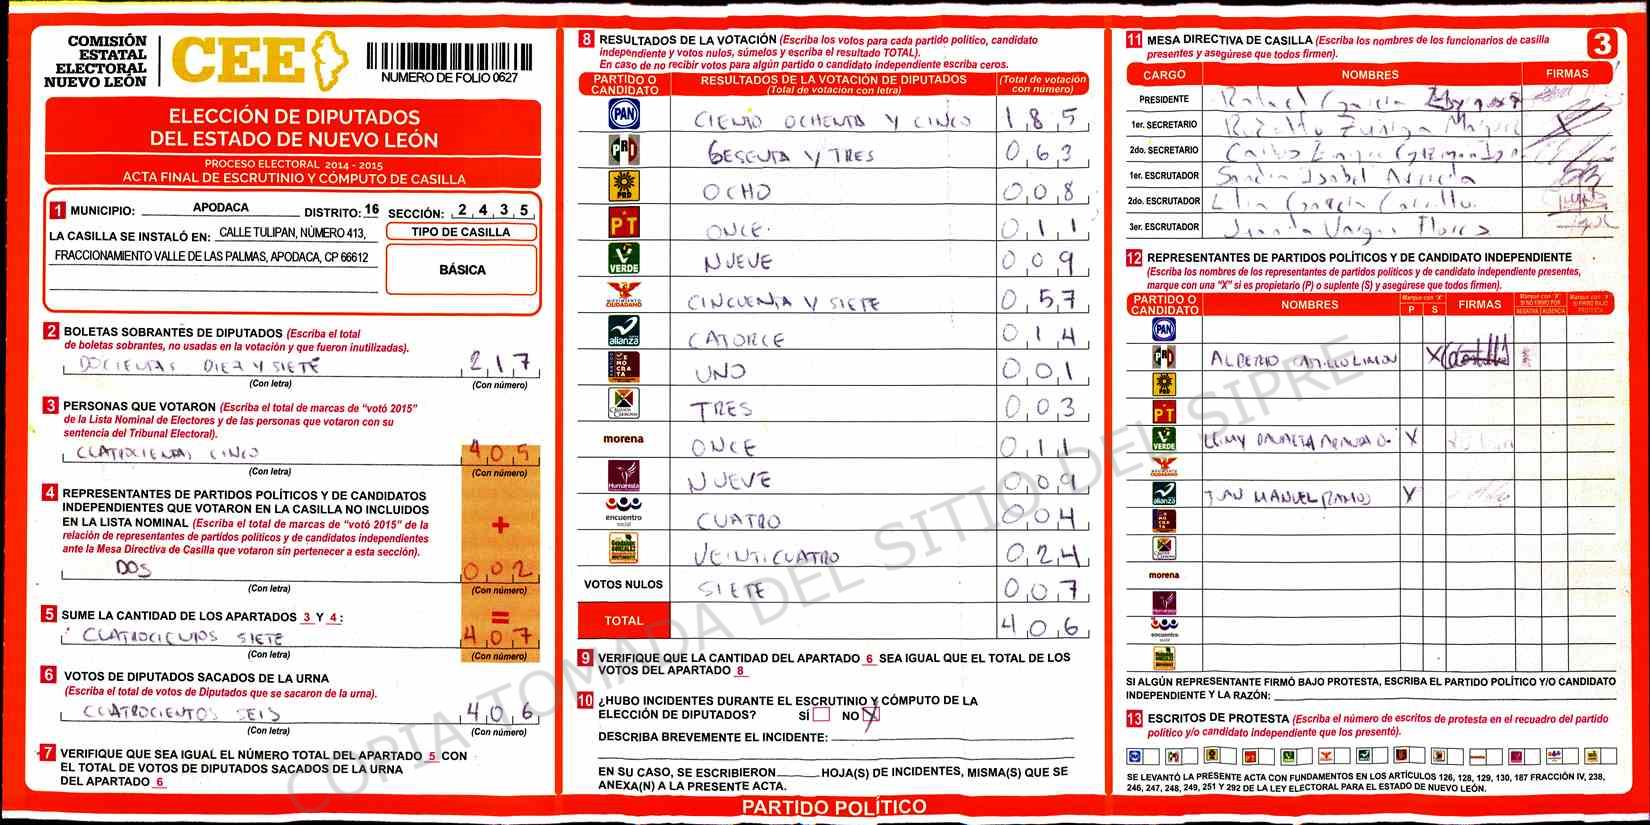 COMISIÓN
ESTATAL
ELECTORAL
NUEVO LEÓN
CEE
NUMERO DE FOLIO 0627
ELECCIÓN DE DIPUTADOS
DEL ESTADO DE NUEVO LEÓN
PROCESO ELECTORAL 2014 - 2015
ACTA FINAL DE ESCRUTINIO Y CÓMPUTO DE CASILLA
1 MUNICIPIO: APODACA DISTRITO: 16 SECCIÓN: 2 4 3 5
LA CASILLA SE INSTALÓ EN: CALLE TULIPAN, NÚMERO 413,
FRACCIONAMIENTO VALLE DE LAS PALMAS, APODACA, CP 66612
TIPO DE CASILLA
BÁSICA
2 BOLETAS SOBRANTES DE DIPUTADOS (Escriba el total
de boletas sobrantes, no usadas en la votación y que fueron inutilizadas).
DOCIENTAS DIEZ Y SIETE 2 1 7
(Con letra) (Con número)
3 PERSONAS QUE VOTARON (Escriba el total de marcas de “votó 2015”
de la Lista Nominal de Electores y de las personas que votaron con su
sentencia del Tribunal Electoral).
CUATROCIENTAS CINCO 4 0 5
(Con letra) (Con número)
4 REPRESENTANTES DE PARTIDOS POLÍTICOS Y DE CANDIDATOS
INDEPENDIENTES QUE VOTARON EN LA CASILLA NO INCLUIDOS
EN LA LISTA NOMINAL (Escriba el total de marcas de “votó 2015” de la
relación de representantes de partidos políticos y de candidatos independientes
ante la Mesa Directiva de Casilla que votaron sin pertenecer a esta sección).
+
DOS 0 0 2
(Con letra) (Con número)
5 SUME LA CANTIDAD DE LOS APARTADOS 3 Y 4: =
CUATROCIENTOS SIETE 4 0 7
(Con letra) (Con número)
6 VOTOS DE DIPUTADOS SACADOS DE LA URNA
(Escriba el total de votos de Diputados que se sacaron de la urna).
CUATROCIENTOS SEIS 4 0 6
(Con letra) (Con número)
7 VERIFIQUE QUE SEA IGUAL EL NÚMERO TOTAL DEL APARTADO 5 CON
EL TOTAL DE VOTOS DE DIPUTADOS SACADOS DE LA URNA
DEL APARTADO 6
8 RESULTADOS DE LA VOTACIÓN (Escriba los votos para cada partido político, candidato
independiente y votos nulos, súmelos y escriba el resultado TOTAL).
En caso de no recibir votos para algún partido o candidato independiente escriba ceros.
PARTIDO O CANDIDATO RESULTADOS DE LA VOTACIÓN DE DIPUTADOS (Total de votación con letra) (Total de votación con número)
PAN CIENTO OCHENTA Y CINCO 1 8 5
PRI SESENTA Y TRES 0 6 3
PRD OCHO 0 0 8
PT ONCE 0 1 1
VERDE NUEVE 0 0 9
MOVIMIENTO CIUDADANO CINCUENTA Y SIETE 0 5 7
alianza CATORCE 0 1 4
DEMOCRATA UNO 0 0 1
TRES 0 0 3
morena ONCE 0 1 1
Humanista NUEVE 0 0 9
encuentro social CUATRO 0 0 4
VEINTICUATRO 0 2 4
VOTOS NULOS SIETE 0 0 7
TOTAL 4 0 6
9 VERIFIQUE QUE LA CANTIDAD DEL APARTADO 6 SEA IGUAL QUE EL TOTAL DE LOS
VOTOS DEL APARTADO 8
10 ¿HUBO INCIDENTES DURANTE EL ESCRUTINIO Y CÓMPUTO DE LA
ELECCIÓN DE DIPUTADOS? SÍ NO X
DESCRIBA BREVEMENTE EL INCIDENTE:
EN SU CASO, SE ESCRIBIERON HOJA(S) DE INCIDENTES, MISMA(S) QUE SE
ANEXA(N) A LA PRESENTE ACTA.
PARTIDO POLÍTICO
11 MESA DIRECTIVA DE CASILLA (Escriba los nombres de los funcionarios de casilla
presentes y asegúrese que todos firmen).
3
CARGO NOMBRES FIRMAS
PRESIDENTE Rafael Garcia
1er. SECRETARIO Zuñiga
2do. SECRETARIO Carlos
1er. ESCRUTADOR Sandra Isabel
2do. ESCRUTADOR Garcia
3er. ESCRUTADOR Vargas Flores
12 REPRESENTANTES DE PARTIDOS POLÍTICOS Y DE CANDIDATO INDEPENDIENTE
(Escriba los nombres de los representantes de partidos políticos y de candidato independiente presentes,
marque con una “X” si es propietario (P) o suplente (S) y asegúrese que todos firmen).
PARTIDO O CANDIDATO NOMBRES Marque con "X" P S FIRMAS Marque con "X" SI NO FIRMÓ POR NEGATIVA AUSENCIA Marque con "X" SI FIRMÓ BAJO PROTESTA
PAN
PRI ALBERTO CASTILLO LIMON X
PRD
PT
VERDE X
alianza JUAN MANUEL RAMOS X
morena
Humanista
encuentro social
SI ALGÚN REPRESENTANTE FIRMÓ BAJO PROTESTA, ESCRIBA EL PARTIDO POLÍTICO Y/O CANDIDATO
INDEPENDIENTE Y LA RAZÓN:
13 ESCRITOS DE PROTESTA (Escriba el número de escritos de protesta en el recuadro del partido
político y/o candidato independiente que los presentó).
SE LEVANTÓ LA PRESENTE ACTA CON FUNDAMENTOS EN LOS ARTÍCULOS 126, 128, 129, 130, 187 FRACCIÓN IV, 238,
246, 247, 248, 249, 251 Y 292 DE LA LEY ELECTORAL PARA EL ESTADO DE NUEVO LEÓN.
COPIA TOMADA DEL SITIO DEL SIPRE